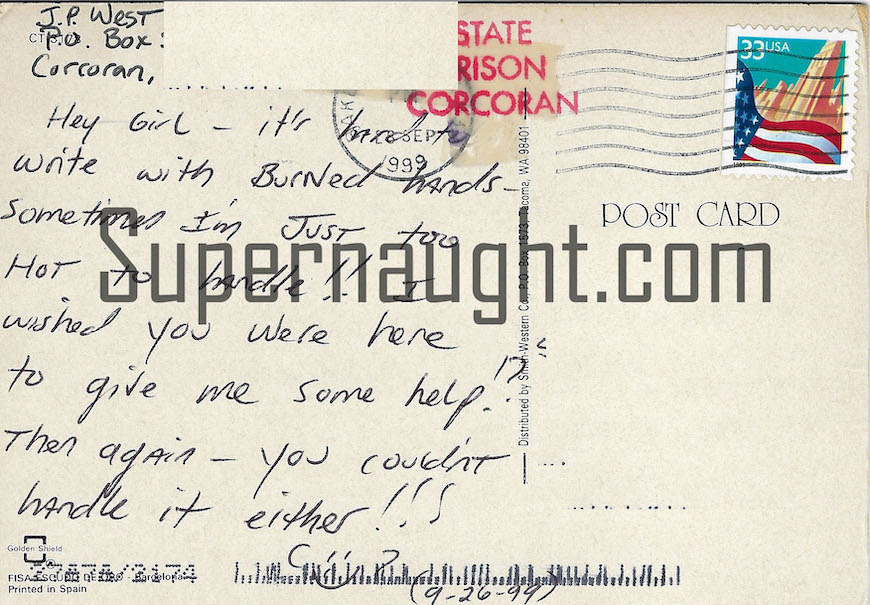 J.P. West
P.O. Box:
Corcoran,
STATE
PRISON
CORCORAN
SEP
1999
33 USA
POST CARD
Hey Girl – it's hard to
write with Burned hands –
sometimes I'm Just too
Hot to handle!! I
wished you were here
to give me some help!!?
Then again – you couldn't
handle it either!!!
(9-26-99)
Supernaught.com
Distributed by Smith-Western Co., P.O. Box 1573, Tacoma, WA 98401
Golden Shield
FISA-ESCUDO DE ORO - Barcelona
Printed in Spain